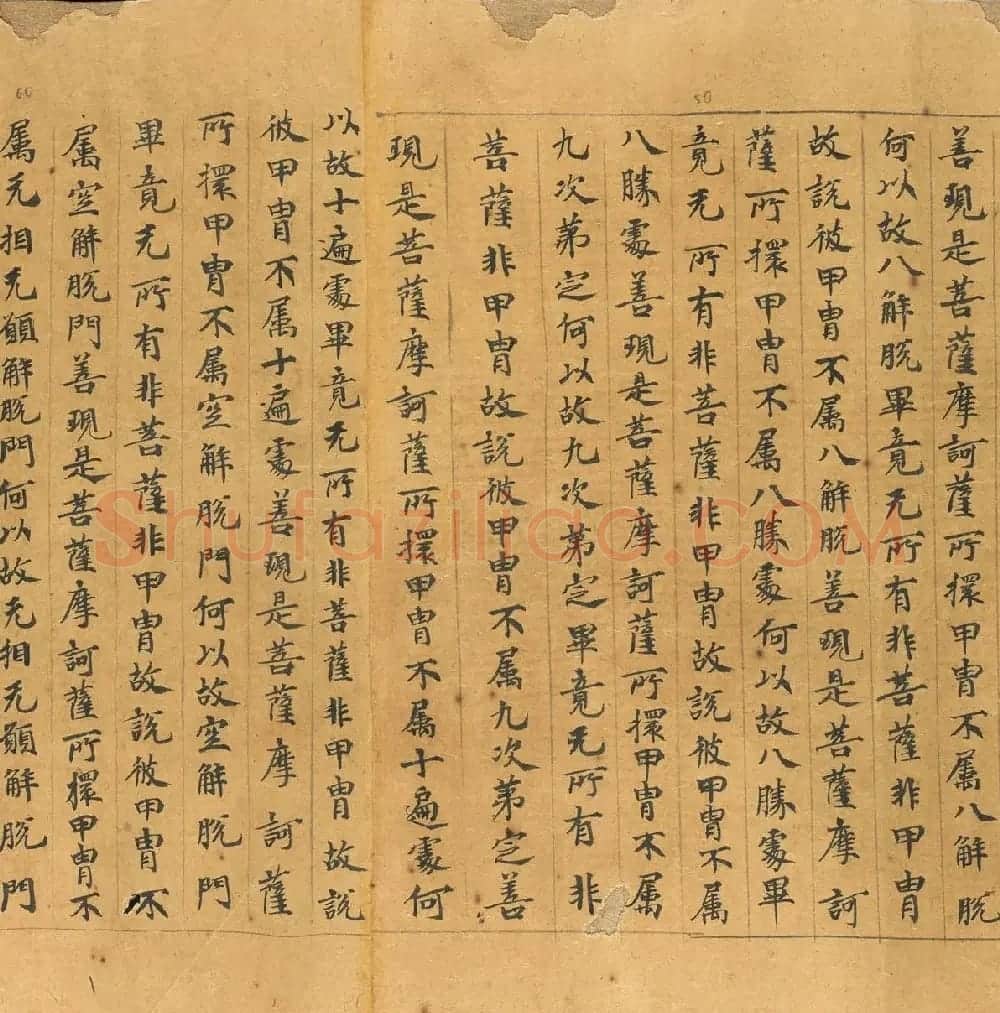 50
善現是菩薩摩訶薩所擐甲冑不属八解脱
何以故八解脱畢竟无所有非菩薩非甲冑
故説彼甲冑不属八解脱善現是菩薩摩訶
薩所擐甲冑不属八勝處何以故八勝處畢
竟无所有非菩薩非甲冑故説彼甲冑不属
八勝處善現是菩薩摩訶薩所擐甲冑不属
九次第定何以故九次第定畢竟无所有非
菩薩非甲冑故説彼甲冑不属九次第定善
現是菩薩摩訶薩所擐甲冑不属十遍處何
以故十遍處畢竟无所有非菩薩非甲冑故説
彼甲冑不属十遍處善現是菩薩摩訶薩
所擐甲冑不属空解脱門何以故空解脱門
畢竟无所有非菩薩非甲冑故説彼甲冑不
属空解脱門善現是菩薩摩訶薩所擐甲冑不
60
属无相无願解脱門何以故无相无願解脱門
Shufaziliao.COM